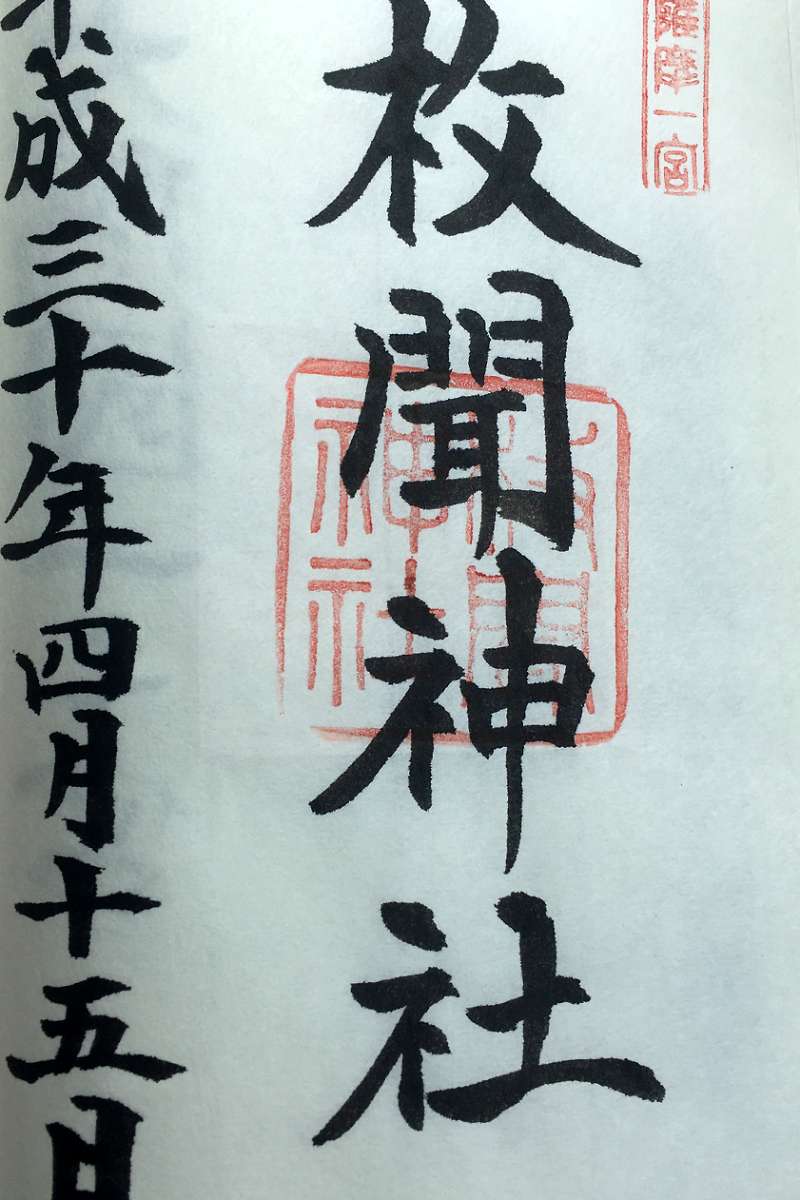 薩隅一宮
枚聞神社
枚聞
神社
平成三十年四月十五日